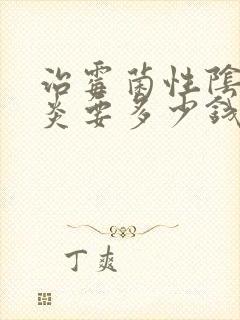 治霉菌性陰
炎要多少錢
丁爽